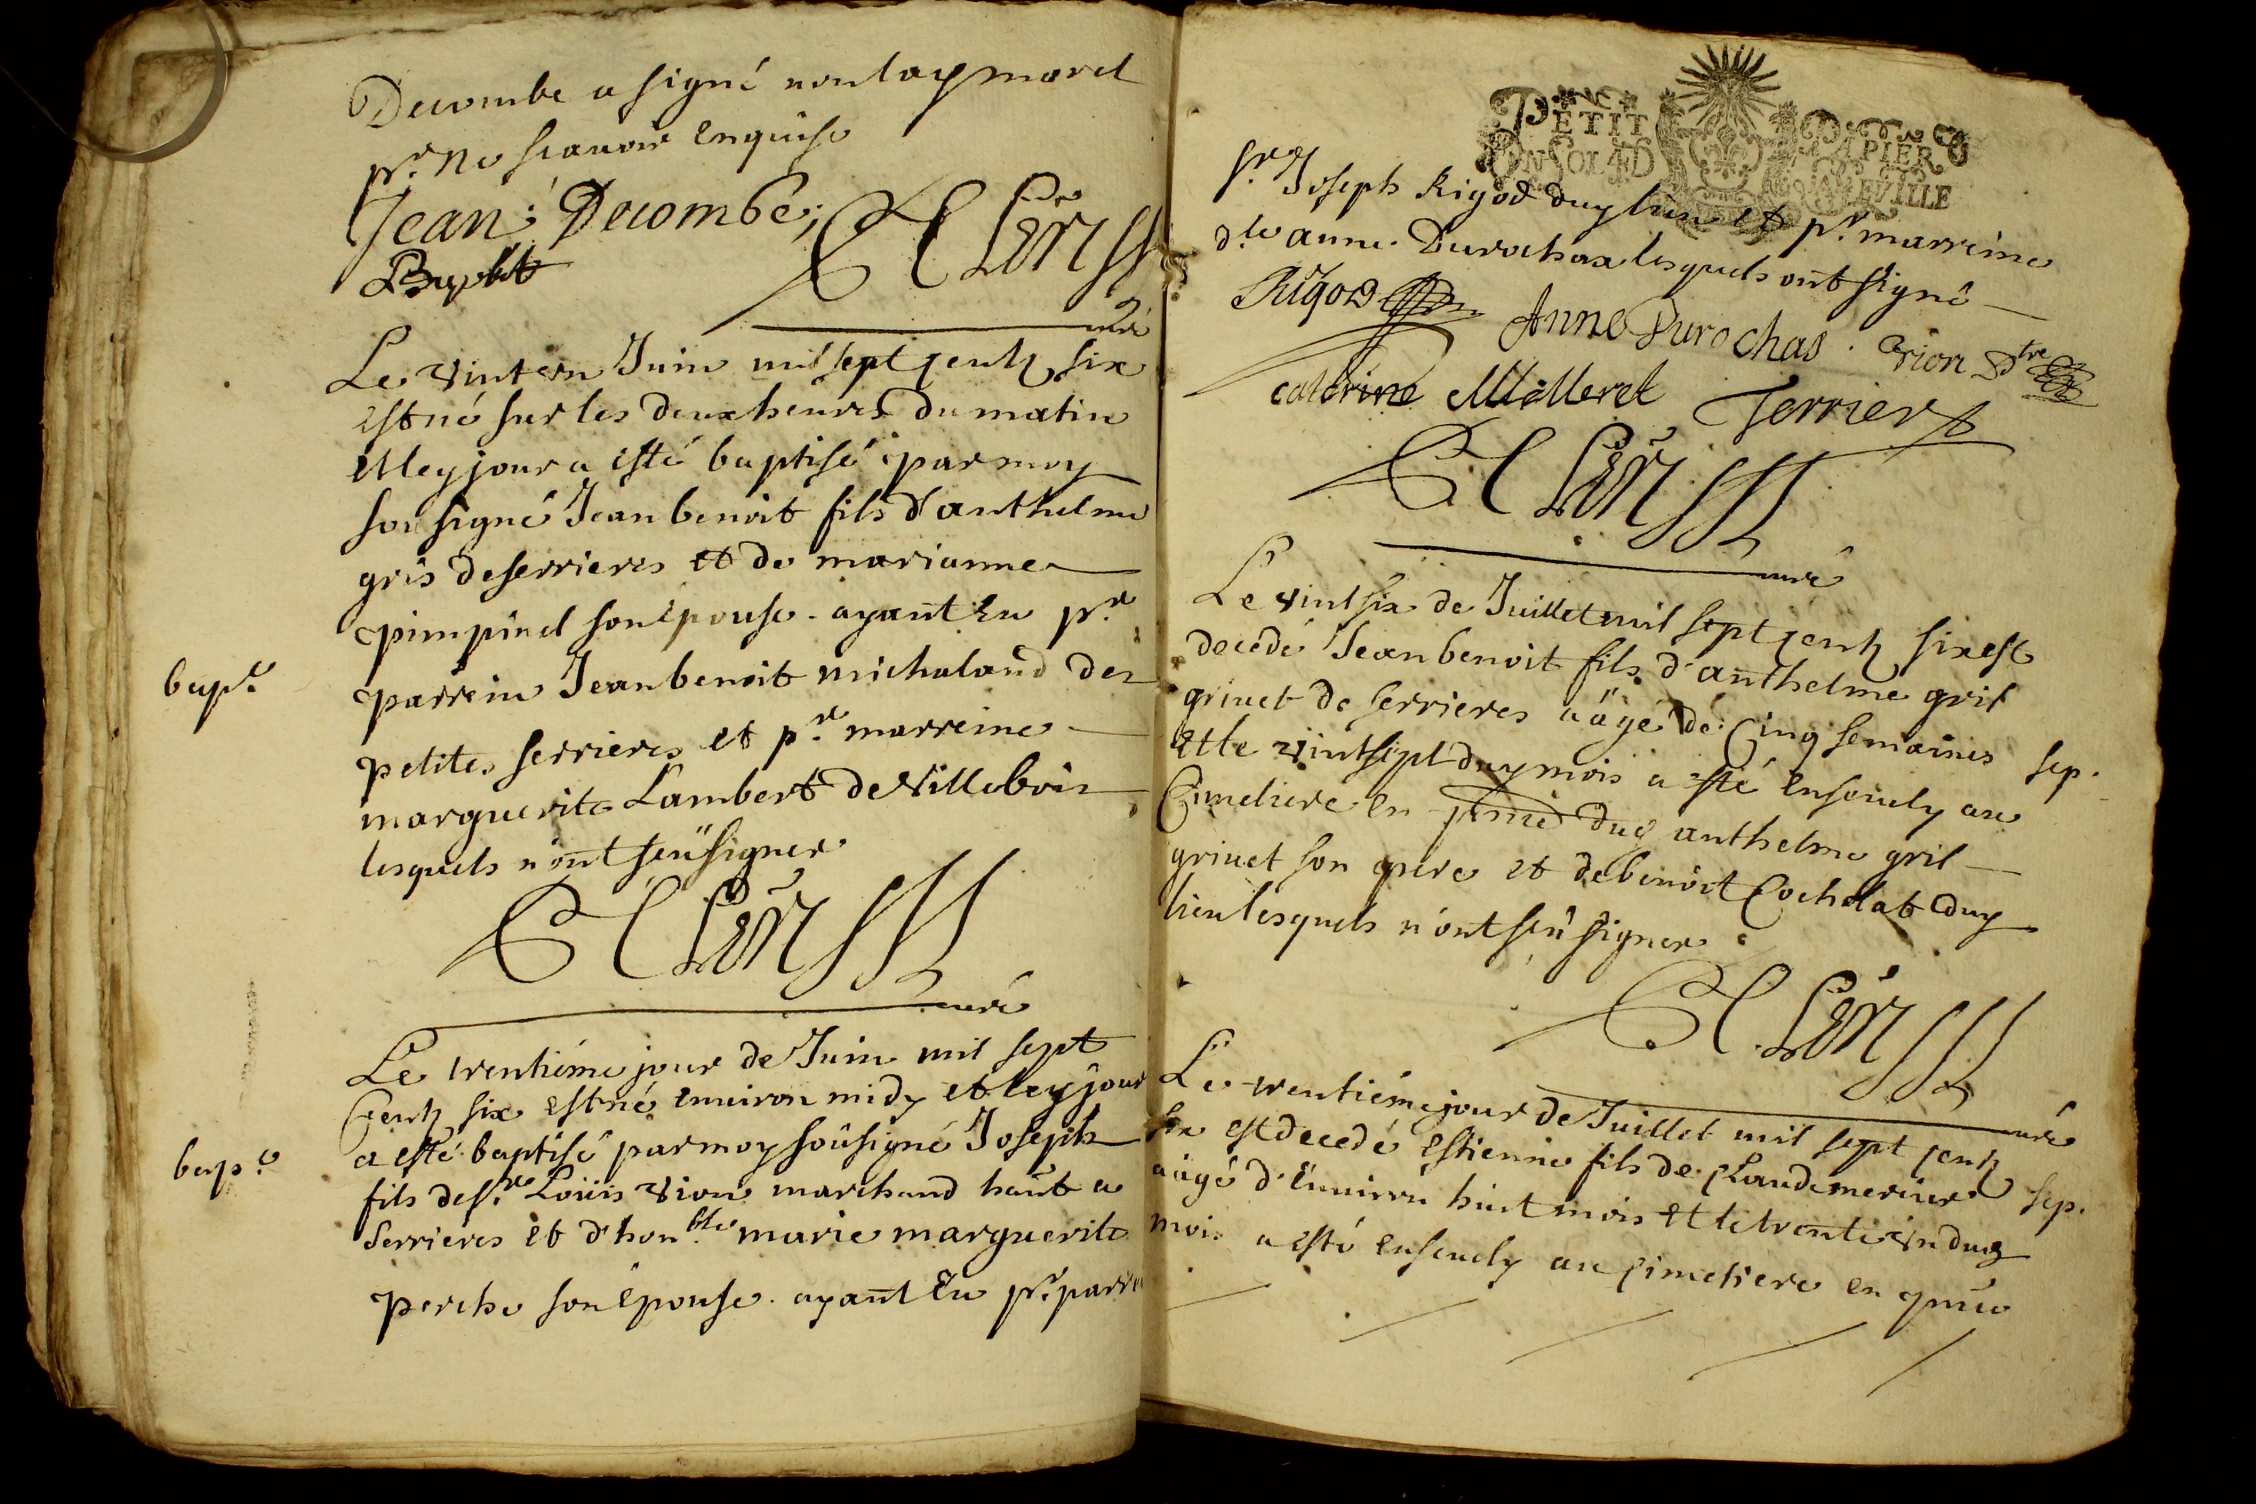 Decombe a signé non lay morel
pr. ne scavoir enquise
Jean: Decombe;
curé
Le vinteun Juin mil sept centz six
est né sur les deux heures du matin
et ley jour a esté baptisé par moy
sousigné Jean benoit fils d'anthelme
gris de serrieres et de marianne
pimpinel son épouse. ayant eu pr.
bap.e
parrein Jean benoit michaland des
petites serrieres et pr. marreine
marguerite Lambert de Villebois
lesquels n'ont seü signer
curé
Le trentiéme jour de Juin mil sept
Centz six est né environ midy et ley jour
bap.e
a esté baptisé par moy soûsigné Joseph
fils de sr. Loüis vion marchand hau͂t a
serrieres et d'hon.ble marie marguerite
perche son épouse. ayant eu pr. parre
PETIT PAPIER
sr. Joseph Rigod duy lieu et pr. marreine
d.le anne Durochax lesquels ont signé
Rigod
Anne Durochas. vion
caterine Milleret Terrier
curé
Le vint six de Juillet mil sept centz six est
decedé Jean benoit fils d'anthelme gril
grinet de serrieres aâgé de Cinq semaines
sep.
et le vintsept duy mois a esté ensevely au
Cimetiere en duy anthelme gril
grinet son pere et de benoit Cochelat duy
lieu lesquels n'ont seü signer
curé
Le trentiéme jour de Juillet mil sept centz
six est decedé estienne fils de Claude mercier
sep.
aâgé d'environ huit mois et le trente un duy
mois a esté ensevely au cimetiere en